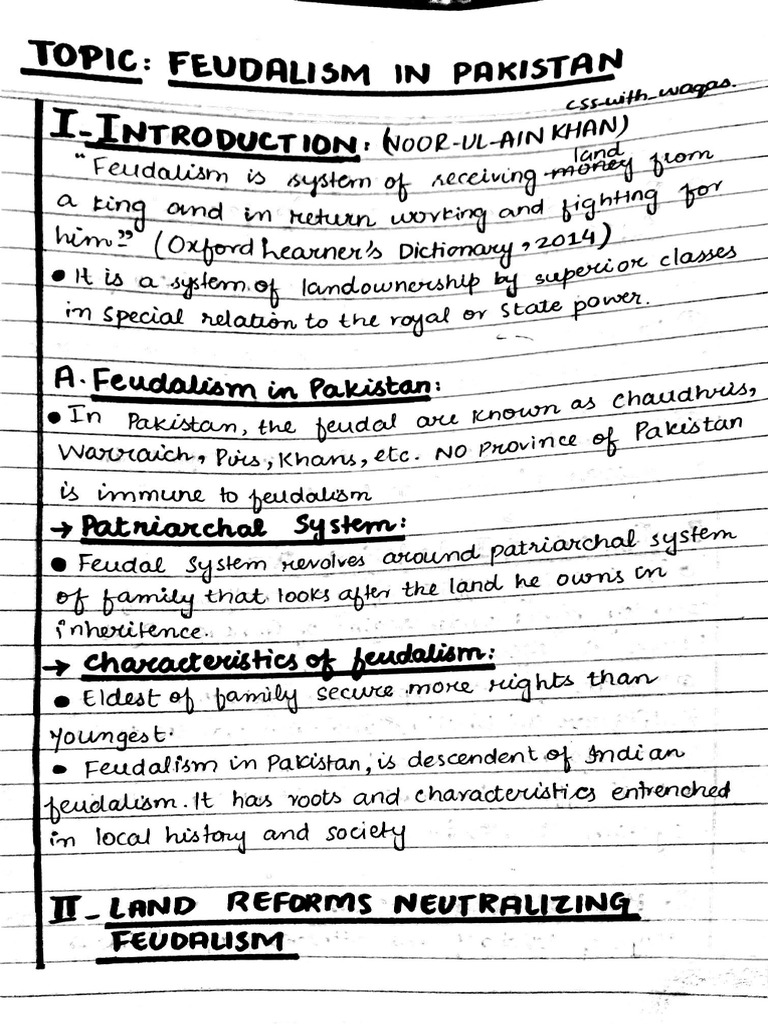 TOPIC: FEUDALISM IN PAKISTAN
css_with_waqas.
I-INTRODUCTION: (NOOR-UL-AIN KHAN)
"Feudalism is system of receiving money land from
a king and in return working and fighting for
him." (Oxford Learner's Dictionary, 2014)
• It is a system of landownership by superior classes
in special relation to the royal or state power.
A. Feudalism in Pakistan:
• In Pakistan, the feudal are known as Chaudhris,
Warraich, Pirs, Khans, etc. NO Province of Pakistan
is immune to feudalism
→ Patriarchal System:
• Feudal System revolves around patriarchal system
of family that looks after the land he owns in
inheritence.
→ Characteristics of feudalism:
• Eldest of family secure more rights than
youngest.
• Feudalism in Pakistan, is descendent of Indian
feudalism. It has roots and characteristics entrenched
in local history and society
II - LAND REFORMS NEUTRALIZING
FEUDALISM